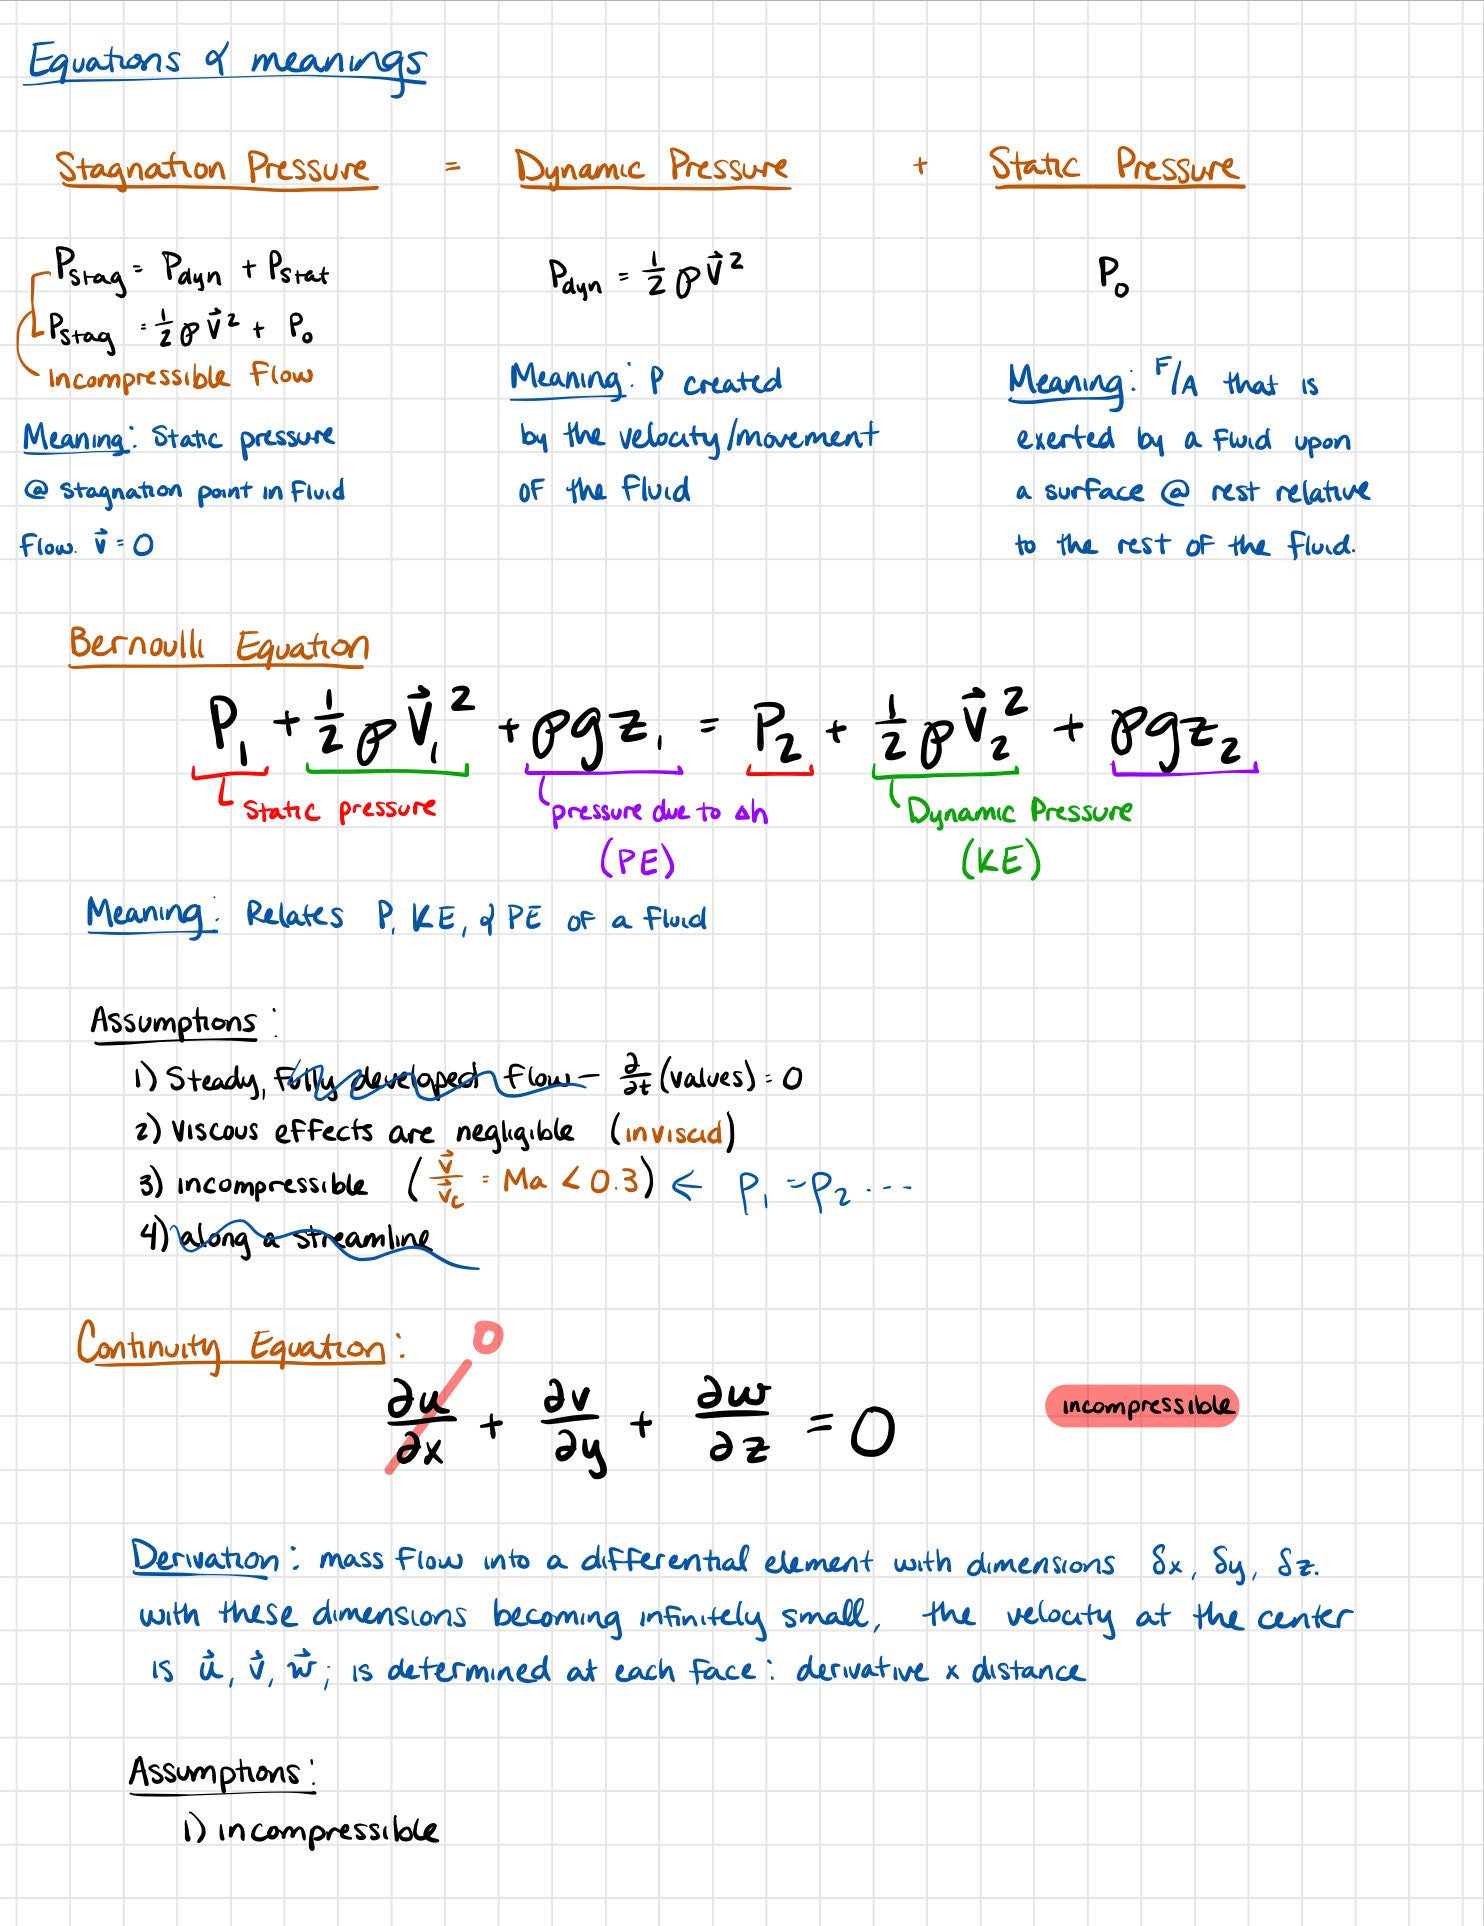 Equations & meanings
Stagnation Pressure = Dynamic Pressure + Static Pressure
Pstag = Pdyn + Pstat
Pstag = ½ρV⃗² + P₀
Incompressible Flow
Meaning: Static pressure
@ stagnation point in Fluid
Flow. v⃗ = 0
Pdyn = ½ρV⃗²
Meaning: P created
by the velocity/movement
of the Fluid
P₀
Meaning: F/A that is
exerted by a Fluid upon
a surface @ rest relative
to the rest of the fluid.
Bernoulli Equation
P₁ + ½ρV⃗₁² + ρgz₁ = P₂ + ½ρV⃗₂² + ρgz₂
Static pressure
pressure due to Δh
(PE)
Dynamic Pressure
(KE)
Meaning: Relates P, KE, & PE of a fluid
Assumptions:
1) Steady, fully developed flow – ∂/∂t (values) = 0
2) viscous effects are negligible (inviscid)
3) incompressible (v⃗/v⃗c = Ma < 0.3) ← ρ₁ = ρ₂ ...
4) along a streamline
Continuity Equation:
0
∂u/∂x + ∂v/∂y + ∂w/∂z = 0
incompressible
Derivation: mass flow into a differential element with dimensions δx, δy, δz.
with these dimensions becoming infinitely small, the velocity at the center
is u⃗, v⃗, w⃗; is determined at each face: derivative x distance
Assumptions:
1) incompressible